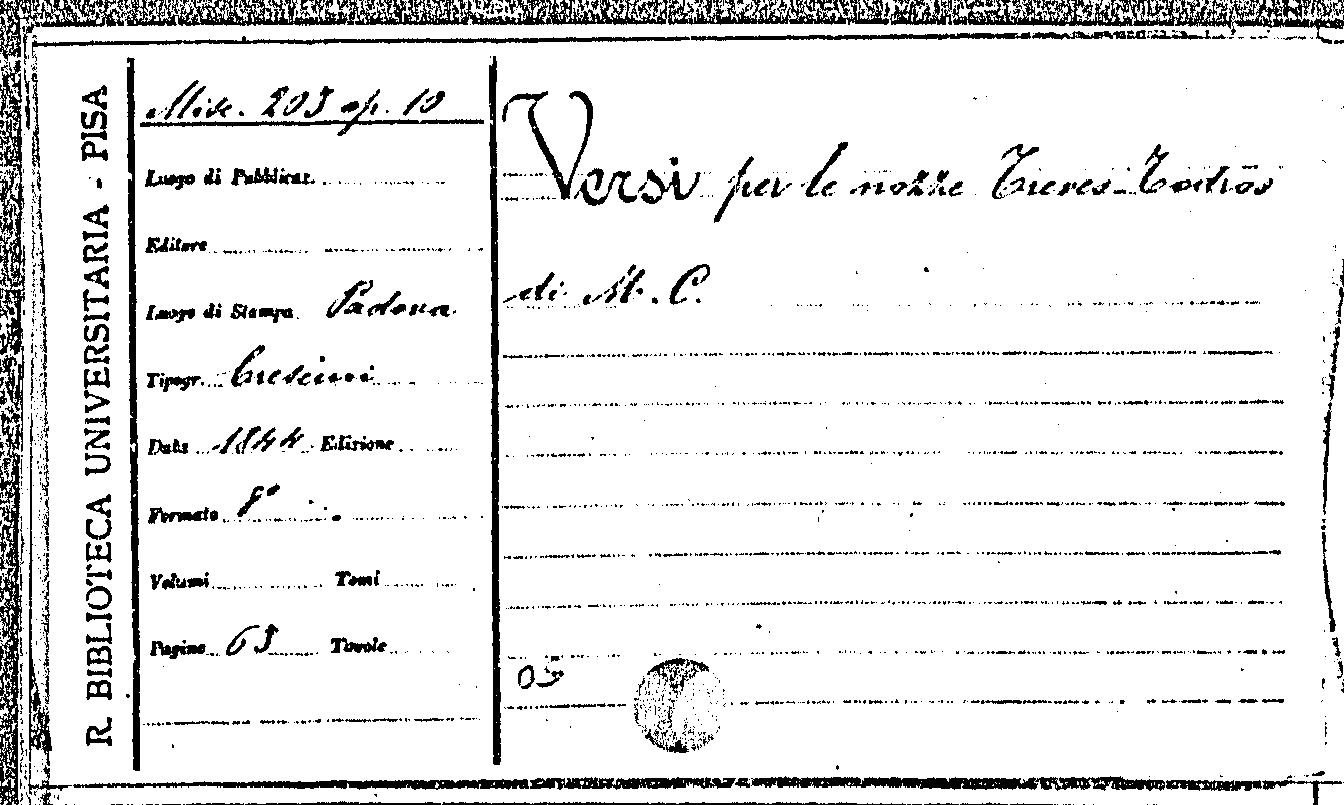 R. BIBLIOTECA UNIVERSITARIA - PISA
Misc. 203 op. 10
Luogo di Pubblicaz.
Editore
Luogo di Stampa Padova
Tipogr. Crescini
Data 1844 Edizione
Formato 8°
Volumi Tomi
Pagine 63 Tavole
Versi per le nozze Treves-Todros
di M. C.